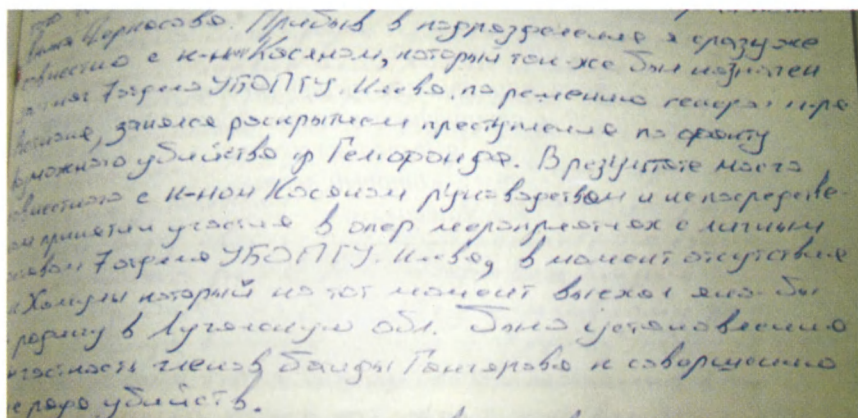 Черкасова. Прибыв в подразделение я сразу же
совместно с к-ном Касяном, который так-же был назначен
7 отдел УБОПГУ г. Киева, по решению генерал
занялся раскрытием преступления по факту
возможного убийства ф Гельфонда. В результате моего
совместного с к-ном Касяном руководством и непосредстве-
принятии участия в опер мероприятиях с личным
7 отдела УБОПГУ г. Киева, в момент отсутствия
Хамулы который на тот момент выехал яко-бы
родину в Луганскую обл. было установленно
членов банды Гончарова к совершению
рода убийств.